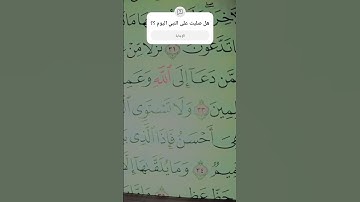 هل صليت على النبي اليوم ؟؟
مَّا تَدَّعُونَ ٣١ نُزُلًا مِّنْ
مِّمَّن دَعَا إِلَى اللَّهِ وَعَمِ
لِمِينَ ٣٣ وَلَا تَسْتَوِى ا
هِىَ أَحْسَنُ فَإِذَا الَّذِى
مِيمٌ ٣٤ وَمَا يُلَقَّىٰهَا إِ
حَظٍّ عَظِ